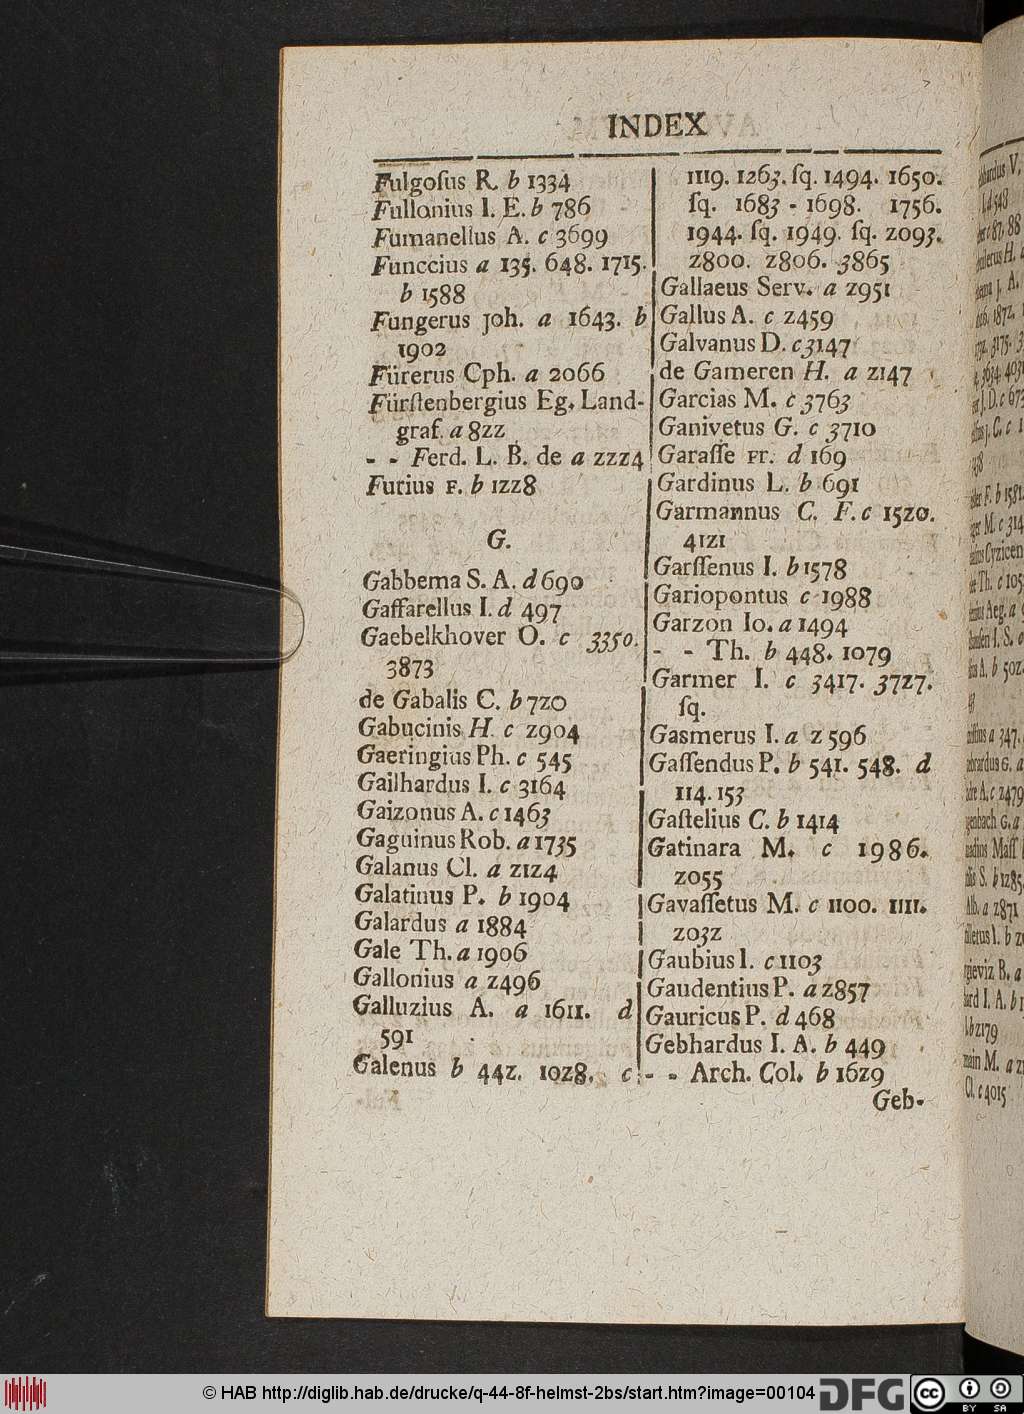 INDEX
Fulgosus R. b 1334
Fullonius I. E. b 786
Fumanellus A. c 3699
Funccius a 135. 648. 1715.
b 1588
Fungerus Joh. a 1643. b
1902
Fürerus Cph. a 2066
Fürſtenbergius Eg. Land-
graf. a 822
- - Ferd. L. B. de a 2224
Furius F. b 1228
G.
Gabbema S. A. d 690
Gaffarellus I. d 497
Gaebelkhover O. c 3350.
3873
de Gabalis C. b 720
Gabucinis H. c 2904
Gaeringius Ph. c 545
Gailhardus I. c 3164
Gaizonus A. c 1463
Gaguinus Rob. a 1735
Galanus Cl. a 2124
Galatinus P. b 1904
Galardus a 1884
Gale Th. a 1906
Gallonius a 2496
Galluzius A. a 1611. d
591
Galenus b 442. 1028. c
1119. 1263. ſq. 1494. 1650.
ſq. 1683 - 1698. 1756.
1944. ſq. 1949. ſq. 2093.
2800. 2806. 3865
Gallaeus Serv. a 2951
Gallus A. c 2459
Galvanus D. c 3147
de Gameren H. a 2147
Garcias M. c 3763
Ganivetus G. c 3710
Garaſſe Fr. d 169
Gardinus L. b 691
Garmannus C. F. c 1520.
4121
Garſſenus I. b 1578
Gariopontus c 1988
Garzon Io. a 1494
- - Th. b 448. 1079
Garmer I. c 3417. 3727.
ſq.
Gasmerus I. a 2596
Gaſſendus P. b 541. 548. d
114. 153
Gaſtelius C. b 1414
Gatinara M. c 1986.
2055
Gavaſſetus M. c 1100. 1111.
2032
Gaubius I. c 1103
Gaudentius P. a 2857
Gauricus P. d 468
Gebhardus I. A. b 449
- - Arch. Col. b 1629
Geb-
© HAB http://diglib.hab.de/drucke/q-44-8f-helmst-2bs/start.htm?image=00104
DFG
cc
BY SA